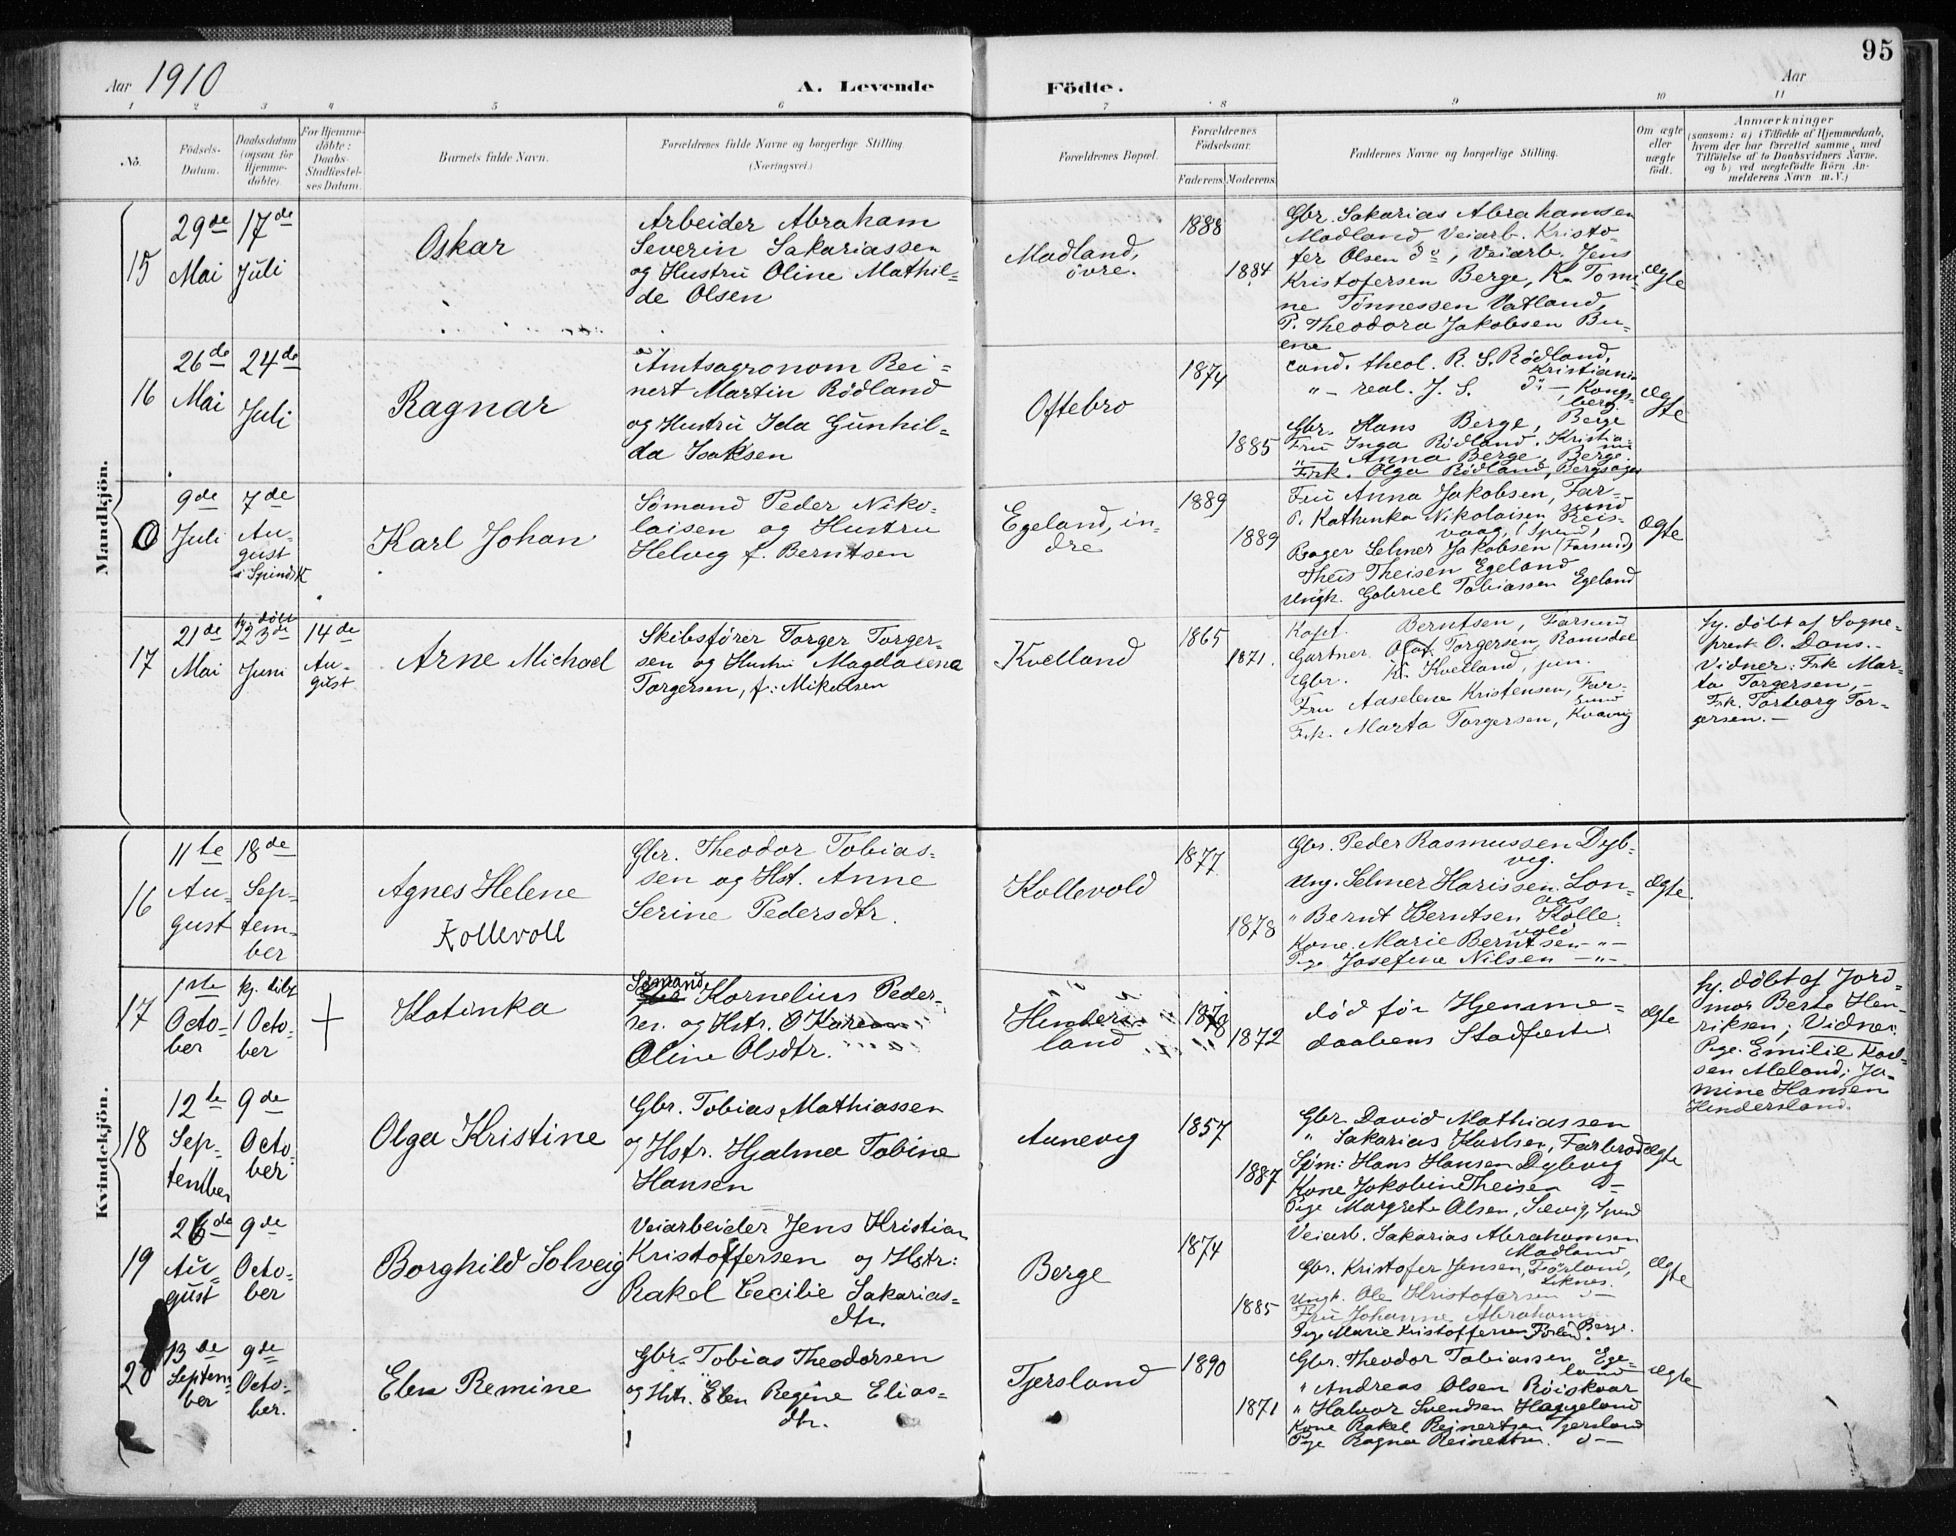 95
Aar 1910
A. Levende
Födte.
Aar
1 2 3 4 5 6 7 8 9 10 11
No.
Födsels-
Datum.
Daabsdatum
(ogsaa for
Hjemme-
døbte).
For Hjemme-
döbte:
Daabs-
Stadfæstel-
ses Datum.
Barnets fulde Navn.
Forældrenes fulde Navne og borgerlige Stilling
(Næringsvei.)
Forældrenes Bopæl.
Forældrenes
Födselsaar.
Faderens
Moderens
Faddernes Navne og borgerlige Stilling.
Om ægte
eller
uægte
födt.
Anmærkninger
(saasom: a) i Tilfælde af Hjemmedaab,
hvem der har forrettet samme, med
Tilföielse af to Daabsvidners Navne,
og b) ved uægtefödte Börn An-
melderens Navn m. V.)
Mandkjön.
15
29de
Mai
17de
Juli
Oskar
Arbeider Abraham
Severin Sakariassen
og Hustru Oline Mathil-
de Olsen
Madland,
övre.
1888
1884
Gbr. Sakarias Abrahamsen
Madland, Veiarb. Kristo-
fer Olsen do, Veiarb. Jens
Kristofersen Berge, K. Tomi-
ne Tønnessen Vatland,
P. Theodora Jakobsen Bu-
ene
ægte
16
26de
Mai
24de
Juli
Ragnar
Amtsagronom Rei-
nert Martin Rödland
og Hustru Ida Gunhil-
da Isaksen
Oftebro
1874
1885
cand. theol. R. S. Rødland,
Kristiania
" - real. J. S. do -, Kongs-
berg.
Gbr. Hans Berge, Berge
Fru Inga Rødland. Kristia-
nia
" Anna Berge, Berge.
Frk. Olga Rødland, Bergsager
ægte
0
9de
Juli
7de
Au-
gust
i Spind K
Karl Johan
Sømand Peder Niko-
laisen og Hustru
Helvig f. Berntsen
Egeland, in-
dre
1889
1889
Fru Anna Jakobsen, Far-
sund
P. Kathinka Nikolaisen Reis-
vaag, (Spind,
Bager Selmer Jakobsen (Farsund)
Theis Theisen Egeland
Ungk. Gabriel Tobiassen Egeland
ægte
17
21de
Mai
hj. døbt
23de
Juni
14de
Au-
gust
Arne Michael
Skibsfører Torger Torger-
sen og Hustru Magdalena
Torgersen, f: Mikelsen
Kvelland
1865
1871.
Kaft. Berntsen, Farsund
Gartner. Olaf Torgersen, Ramsdal
Gbr. K. Kvelland, jun.
Fru Aaselene Kristensen, Far-
sund
Frk. Marta Torgersen, Kvavig
hj. døbt af Sogne-
prest O. Dons.-
Vidner: Frk Mar-
ta Torgersen,-
Frk. Torborg Tor-
gersen.-
Kvindekjön.
16
11te
Au-
gust
18de
Sep-
tem-
ber
Agnes Helene
Kollevoll
Gbr. Theodor Tobias-
sen og Hst. Anne
Serine Pedersdtr.
Kollevold
1877
1878
Gbr. Peder Rasmussen Dyb-
vig.
Ung. Selmer Harissen Lon-
aas
" Bernt Berntsen Kolle-
vold
Kone. Marie Berntsen - " -
Pige Josefine Nilsen - " -
ægte.
17
1ste
Octo-
ber
hj. døbt
1 Octo-
ber
+
Katinka
Sømand
Kornelius Peder-
sen. og Hstr.
Oline Olsdtr.
Henders-
land
1878
1872
død før Hjemme-
daabens Stadfæste
ægte
hj. døbt af Jord-
mor Berte Hen-
riksen; Vidner
Pige. Emilie Karl-
sen Meland; Ja-
mine Hansen
Hendersland.
18
12te
Sep-
tember
9de
Octo-
ber
Olga Kristine
Gbr. Tobias Mathiassen
og Hstr. Hjalma Tobine
Hansen
Aanevig
1857
1887
Gbr. David Mathiassen
" Sakarias Karlsen, Farbrod
Søm: Hans Hansen Dybvig
Kone Jakobine Theisen do
Pige Margrete Olsen, Sævig, Spind
ægte
19
26de
Au-
gust
9de
Octo-
ber
Borghild Solveig
Veiarbeider Jens Kristian
Kristoffersen og Hstr:
Rakel Cecilie Sakarias-
dtr.
Berge
1874
1885
Veiarb. Sakarias Abrahamsen
Madland
Gbr. Kristofer Jensen, Förland,
Liknes.
Ungk. Ole Kristofersen do
Fru Johanne Abrahamsen
Berge.
Pige Marie Kristoffersen Förland.
ægte
20
13de
Septem-
ber
9de
Octo-
ber.
Elen Remine
Gbr. Tobias Theodorsen
og Hstr. Elen Regine Elias-
dtr.
Tjersland
1890
1871
Gbr. Theodor Tobiassen Ege-
land
" Andreas Olsen Röiskvar
" Halvor Svendsen Haugeland
Kone Rakel Reinertsen Tjersland
Pige Ragna Reinertsen do
ægte